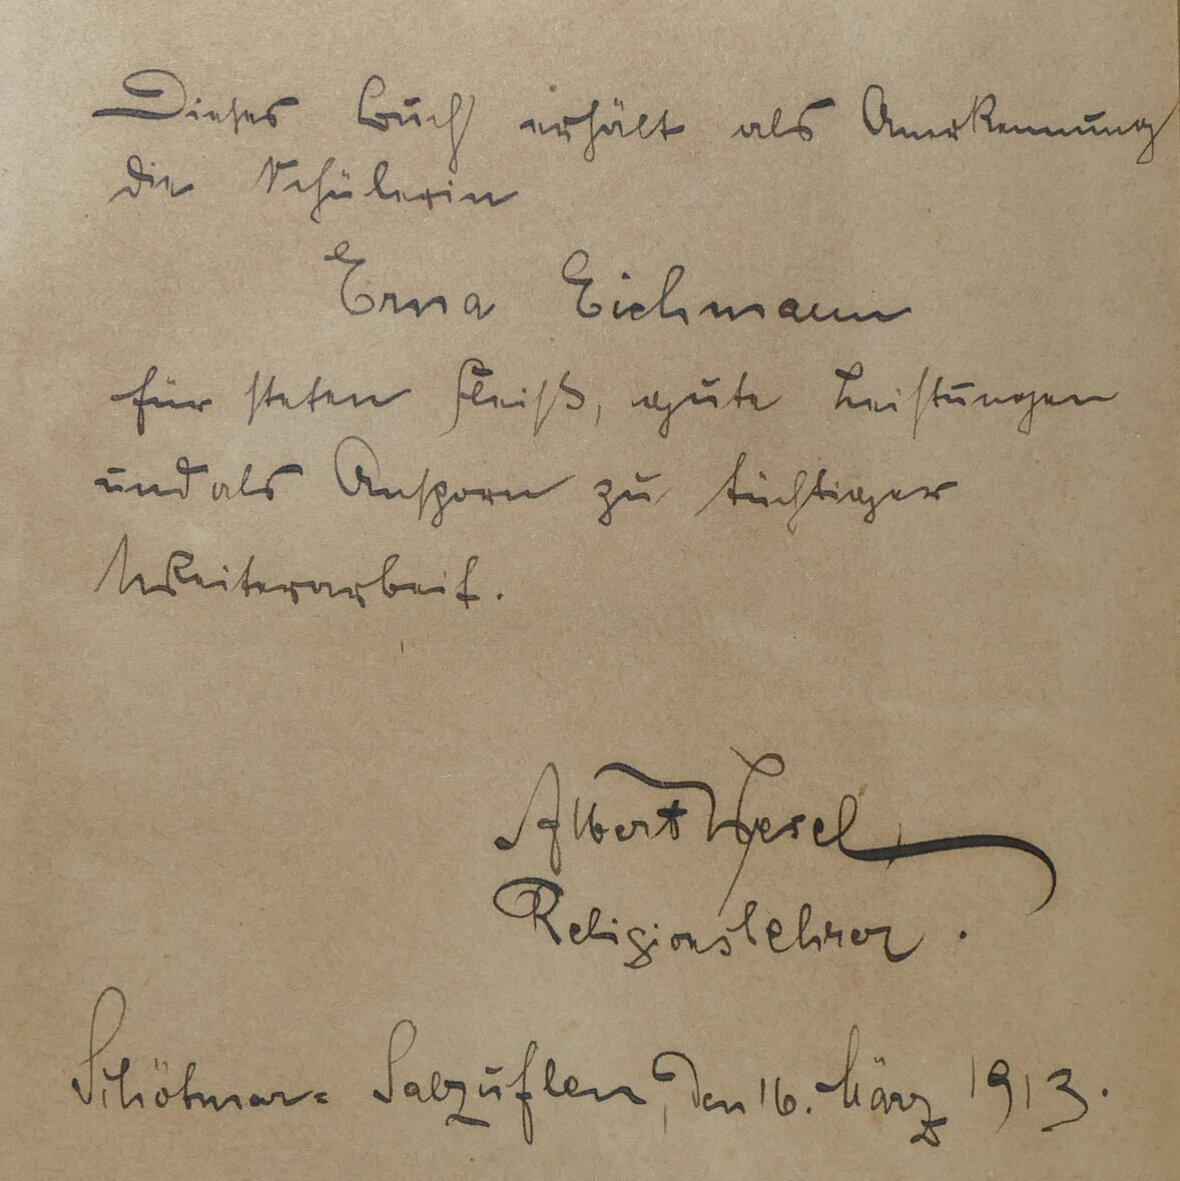 Dieses Buch erhält als Anerkennung
die Schülerin
Erna Eichmann
für steten Fleiß, gute Leistungen
und als Ansporn zu tüchtiger
Weiterarbeit.
Albert Wesel
Religionslehrer.
Schötmar-Salzuflen, den 16. März 1913.